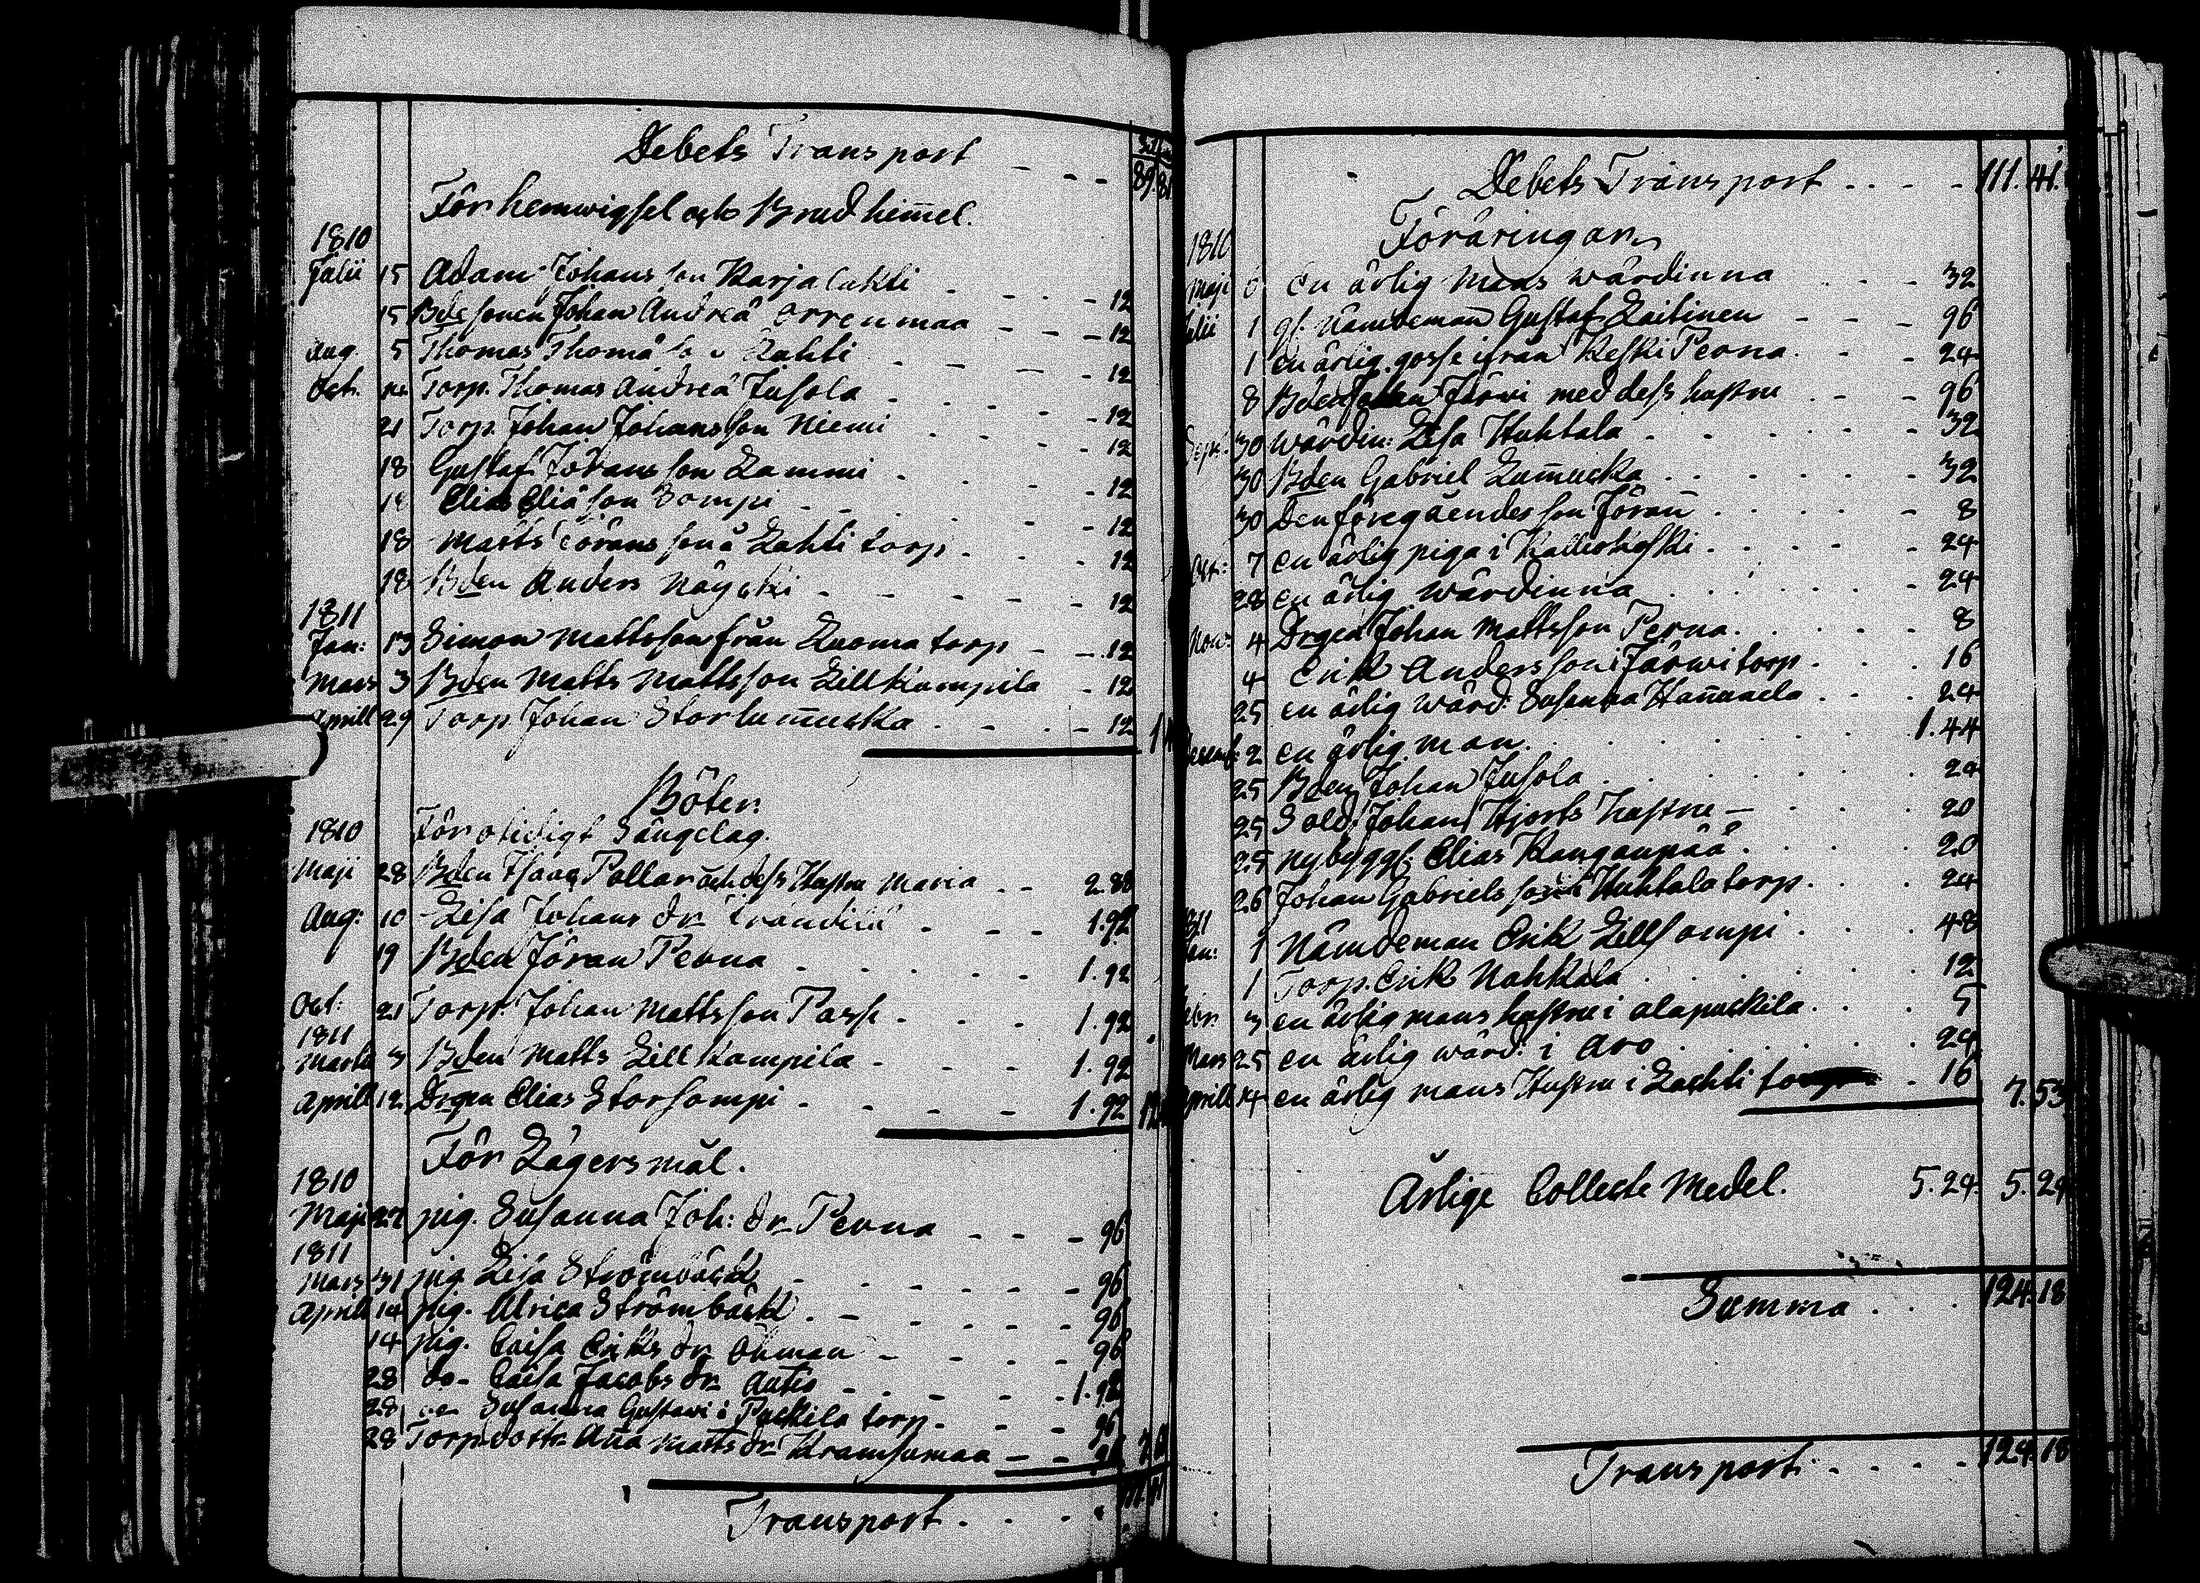 Debets Transport - - - 89 81
För hemwigsel och Brudhimmel.
1810
Julii 15 Adam Johansson Karjalakti - - - 12
15 Bdesonen Johan Andreæ Orrenmaa - - - 12
Aug. 5 Thomas Thomæson Lahti - - - 12
Oct. Torp. Thomas Andreæ Jusola - - - 12
21 Torp. Johan Johansson Niemi - - - 12
18 Gustaf Jöransson Lammi - - - 12
18 Elias Eliæson Sompi - - - 12
18 Matts Jöransson å Lahti torp - - - 12
18 Bden Anders Näycki - - - 12
1811
Jan: 13 Simon Mattsson från Luoma torp - - 12
Mars 3 Bden Matts Mattsson Lillkampila - 12
Aprill 29 Torp Johan Storlummucka - - - 12
Böter
1810 För otidigt Sängelag.
Maji 28 Bden Isaac Pollar och dess Hustru Maria - - 2.88
Aug: 10 Lisa Johans dr - - - 1.92
19 Bden Jöran Perna - - - 1.92
Oct: 21 Torp. Johan Mattsson Pass - - - 1.92
1811
Martii 3 Bden Matts Lillkampila - - - 1.92
Aprill 12 Drgen Elias Storsompi - - - 1.92
För Lägersmål.
1810
Maji 27 pig. Susanna Joh: dr Perna - - - 96
1811
Mars 31 pig. Lisa Strömbäck - - - 96
Aprill 14 pig. Ulrica Strömbäck - - - 96
14 pig. Caisa Eriks dr Öhman - - - 96
28 do - Caisa Jacobs dr Autio - - - 1.92
28 Susanna Gustavi i Puckila torp - - - 96
28 Torp. dottr Anna Matts dr Kramsumaa - - 96
Transport - - -
Debets Transport - - - 111. 41.
Föräringar
1810
Maji 6 en ärlig Mans wärdinna - - - 32
Julii 1 gl. Nämdeman Gustaf Laitinen - - - 96
1 en ärlig gosse ifrån Keski Perna - - 24
8 Bden Johan Järwi med dess hustru - - 96
Sept. 30 wärdin: Lisa Huhtala - - - 32
30 Bden Gabriel Lummucka - - - 32
30 Den föregåendes son Jöran - - - 8
Oct: 7 en ärlig piga i Kalliokoski - - - 24
28 en ärlig wärdinna - - - 24
Nov: 4 Drgen Johan Mattsson Perna - - - 8
4 Erik Andersson i Järwi torp - - - 16
25 en ärlig wärd: Susanna Hannuxela - - - 24
Decemb: 2 en ärlig man - - - 1.44
25 Bden Johan Jusola - - - 24
25 Sold: Johan Hjorts hustru - - - 20
25 nybyggs: Elias Kangaspää - - - 20
26 Johan Gabrielsson i Huhtala torp - - - 24
1811
Jan: 1 Nämdeman Erik Lillsompi - - - 48
1 Torp. Erik Nahkala - - - 12
Febr. 3 en ärlig mans hustru i Alapuckila - - - 5
Mars 25 en ärlig wärd: i Aro - - - 24
Aprill 14 en ärlig mans Hustru i Lachti - 16 7.53
Ärlige Collecte Medel. 5.24. 5.24
Summa - - - 124.18
Transport - - - 124.18